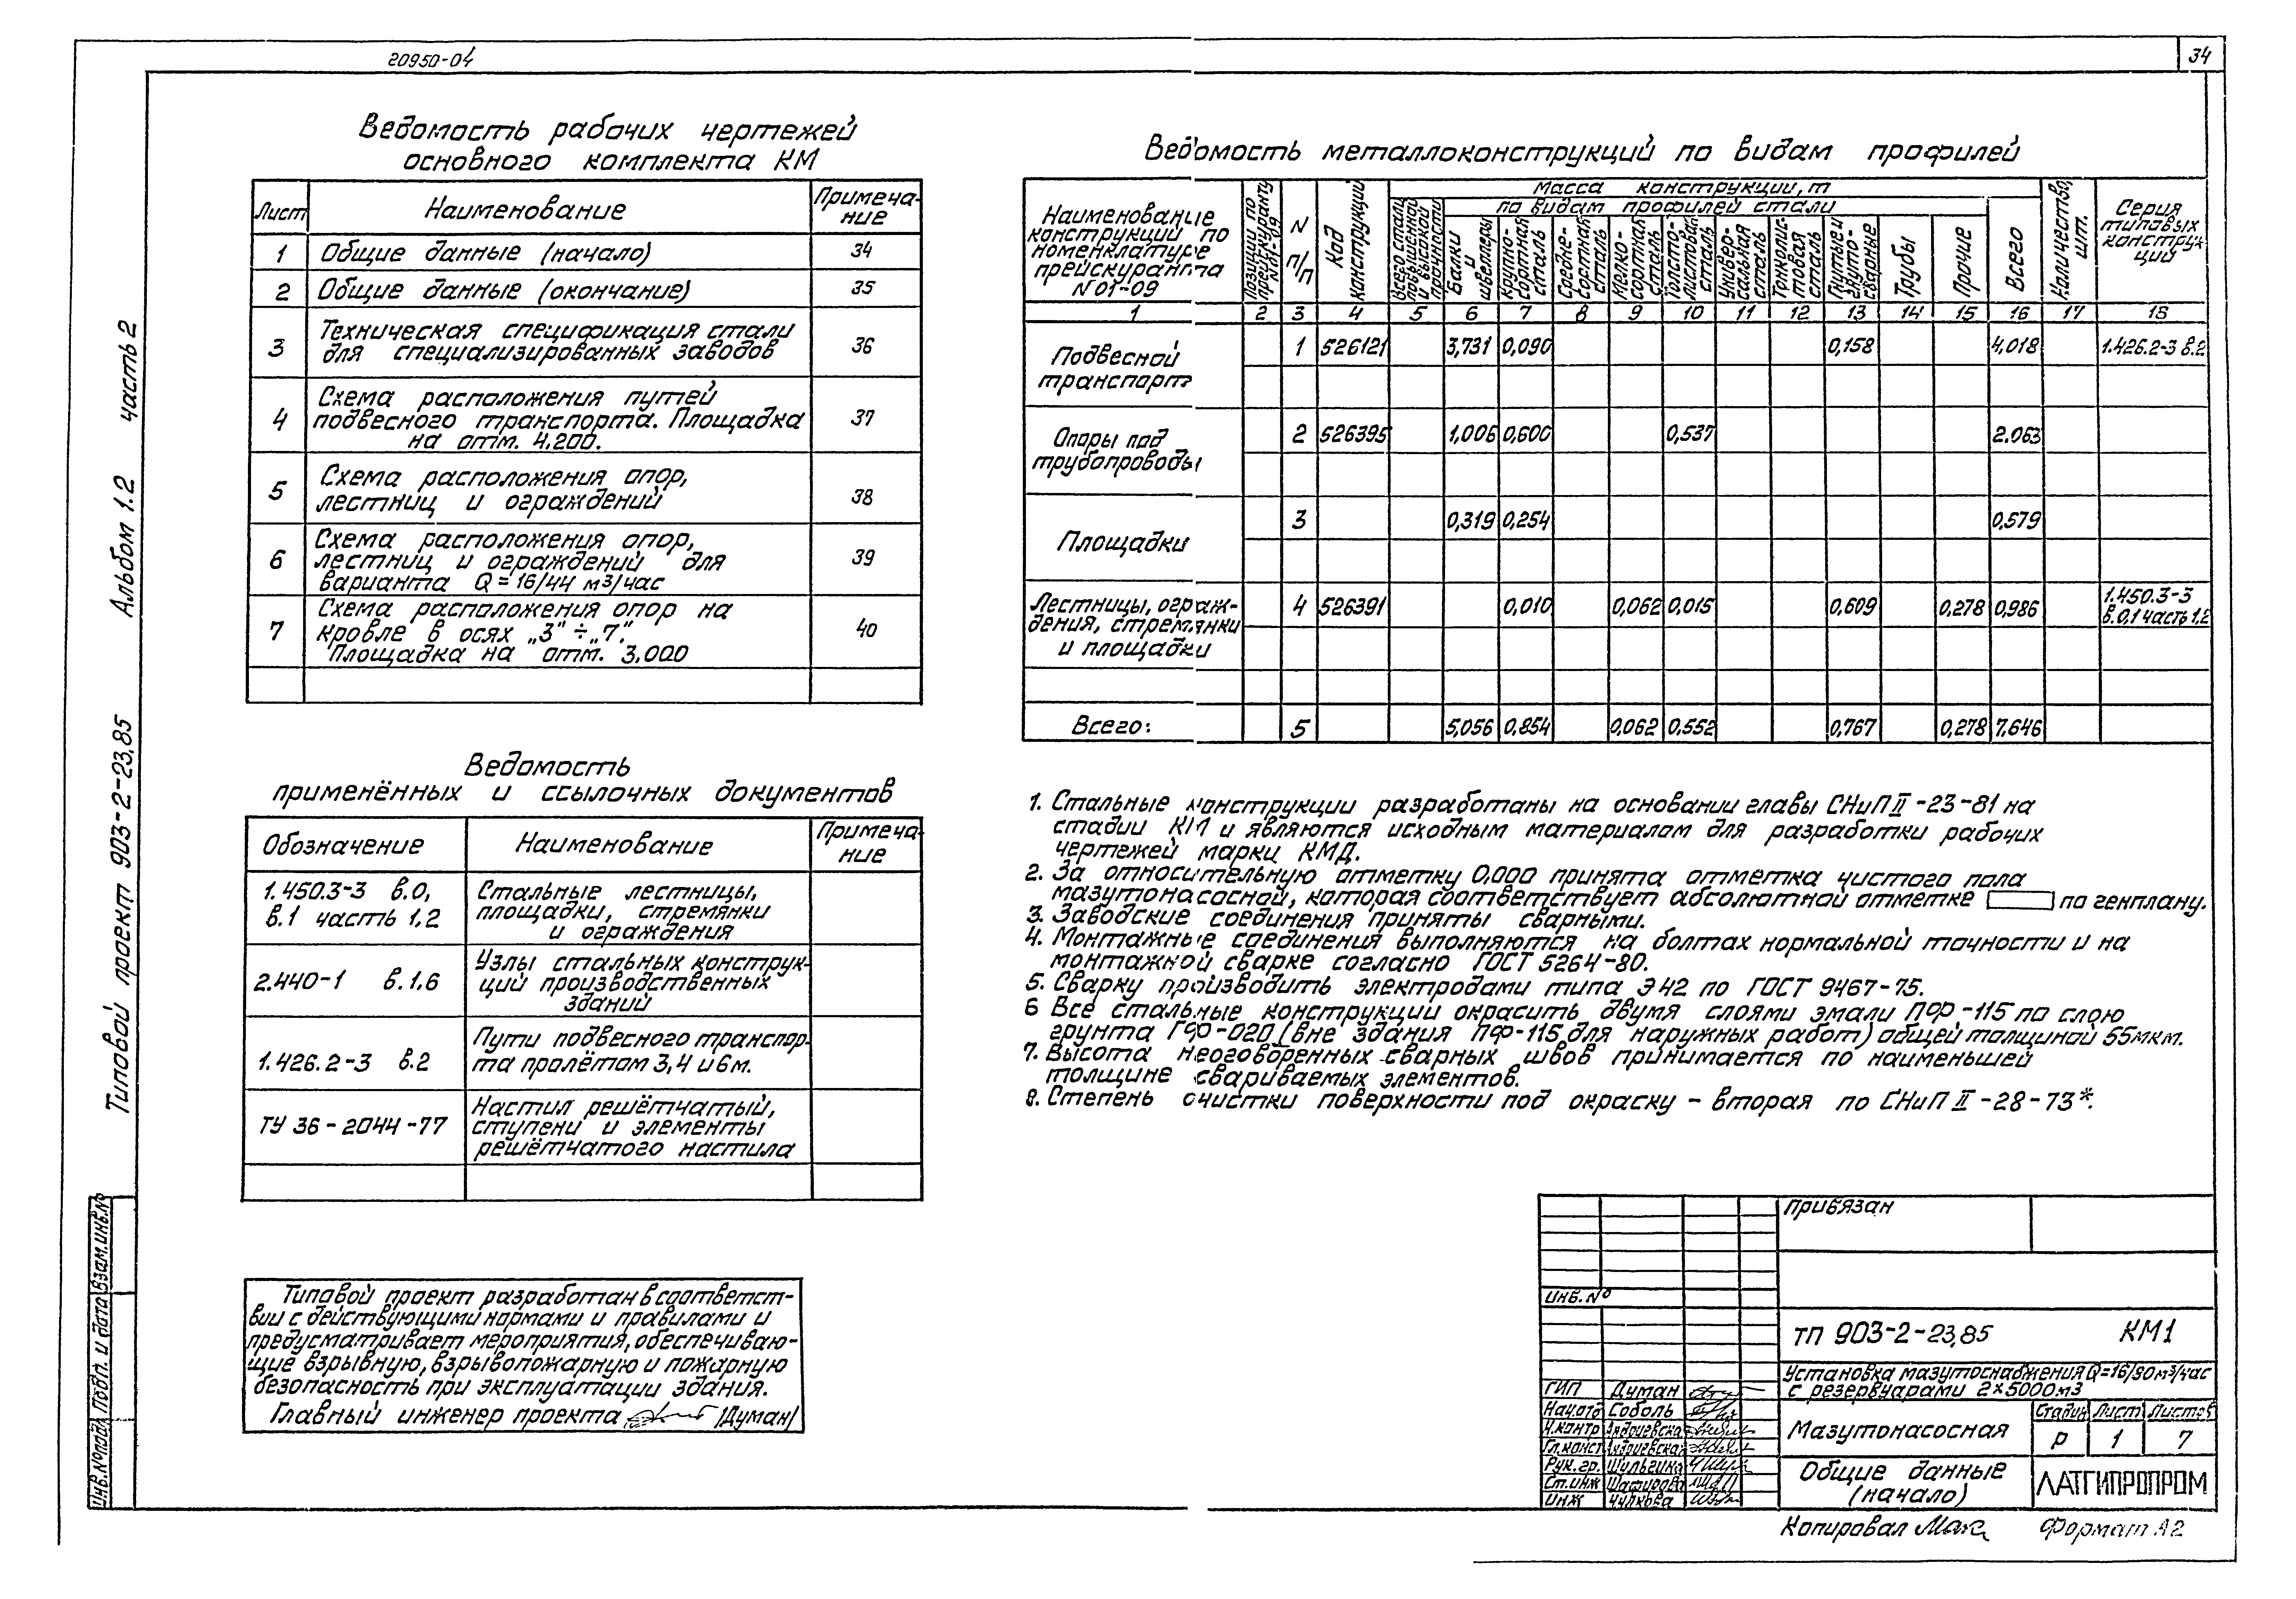 20950-04
34
Типовой проект 903-2-23,85 Альбом 1.2 часть 2
Ведомость рабочих чертежей
основного комплекта КМ
Лист
Наименование
Примеча-
ние
1 Общие данные (начало) 34
2 Общие данные (окончание) 35
3 Техническая спецификация стали
для специализированных заводов 36
4 Схема расположения путей
подвесного транспорта. Площадка
на отм. 4,200. 37
5 Схема расположения опор,
лестниц и ограждений 38
6 Схема расположения опор,
лестниц и ограждений для
варианта Q = 16/44 м3/час 39
7 Схема расположения опор на
кровле в осях „3" ÷ „7".
Площадка на отм. 3,000 40
Ведомость
применённых и ссылочных документов
Обозначение
Наименование
Примеча-
ние
1.450.3-3 в.0,
в.1 часть 1,2
Стальные лестницы,
площадки, стремянки
и ограждения
2.440-1 в.1.6
Узлы стальных конструк-
ций производственных
зданий
1.426.2-3 в.2
Пути подвесного транспор-
та пролётом 3,4 и 6м.
ТУ 36-2044-77
Настил решётчатый,
ступени и элементы
решётчатого настила
Типовой проект разработан в соответст-
вии с действующими нормами и правилами и
предусматривает мероприятия, обеспечиваю-
щие взрывную, взрывопожарную и пожарную
безопасность при эксплуатации здания.
Главный инженер проекта /Думан/
Ведомость металлоконструкций по видам профилей
Наименование
конструкций по
номенклатуре
прейскуранта
N01-09
Позиции по
прейскуранту
N01-09
N
п/п
Код
конструкций
Масса конструкции, т
Всего стали
повышенной
и высокой
прочности
по видам профилей стали
Балки
и
швеллеры
Крупно-
сортная
сталь
Средне-
сортная
сталь
Мелко-
сортная
сталь
Толсто-
листовая
сталь
Универ-
сальная
сталь
Тонколис-
товая
сталь
Гнутые и
гнуто-
сварные
Трубы
Прочие
Всего
Количество,
шт.
Серия
типовых
конструк
ций
1 2 3 4 5 6 7 8 9 10 11 12 13 14 15 16 17 18
Подвесной
транспорт
1 526121 3,731 0,090 0,158 4,018 1.426.2-3 в.2
Опоры под
трубопроводы
2 526395 1,006 0,600 0,537 2.063
Площадки
3 0,319 0,254 0,579
Лестницы, ограж-
дения, стремянки
и площадки
4 526391 0,010 0,062 0,015 0,609 0,278 0,986
1.450.3-3
в.0,1 часть 1,2
Всего: 5 5,056 0,854 0,062 0,552 0,767 0,278 7,646
1. Стальные конструкции разработаны на основании главы СНиП II -23-81 на
стадии КМ и являются исходным материалом для разработки рабочих
чертежей марки КМД.
2. За относительную отметку 0,000 принята отметка чистого пола
мазутонасосной, которая соответствует абсолютной отметке по генплану.
3. Заводские соединения приняты сварными.
4. Монтажные соединения выполняются на болтах нормальной точности и на
монтажной сварке согласно ГОСТ 5264-80.
5. Сварку производить электродами типа Э42 по ГОСТ 9467-75.
6 Все стальные конструкции окрасить двумя слоями эмали ПФ-115 по слою
грунта ГФ-020 (вне здания ПФ-115 для наружных работ) общей толщиной 55мкм.
7. Высота неоговоренных сварных швов принимается по наименьшей
толщине свариваемых элементов.
8. Степень очистки поверхности под окраску - вторая по СНиП II -28-73*.
Инв.№подл. Подп. и дата Взам.инв.№
Привязан
Инв.№
ТП 903-2-23,85 КМ1
Установка мазутоснабжения Q=16/90м³/час
с резервуарами 2×5000м3
ГИП Думан
Нач.отд Соболь
Н.контр Андриевская
Гл.конст Андриевская
Рук.гр. Шильгина
Ст.инж Шафирова
Инж Чулкова
Мазутонасосная
Стадия Лист Листов
Р 1 7
Общие данные
(начало)
ЛАТГИПРОПРОМ
Копировал
Формат А2